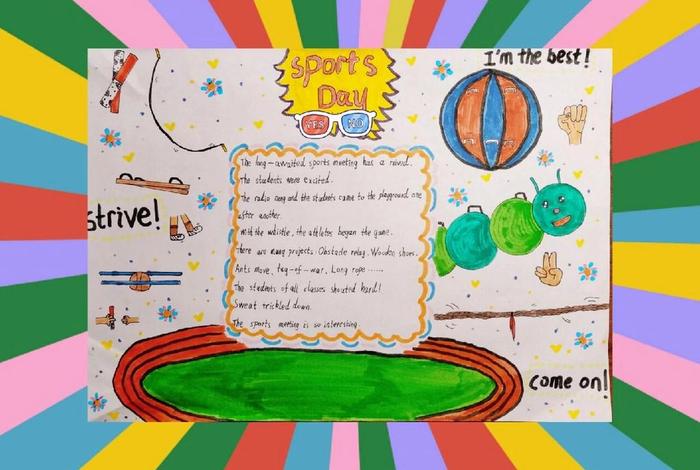 I'm the best!
Sports
Day
YES NO
The long-awaited sports meeting has a rived.
The students were excited.
The radio rang and the students came to the playground one
after another.
With the whistle, the athletes began the game.
There are many projects. Obstacle relay. Wooden shoes.
Ants move, tug-of-war, Long rope ......
The students of all classes shouted hard!
Sweat trickled down.
The sports meeting is so interesting.
strive!
come on!